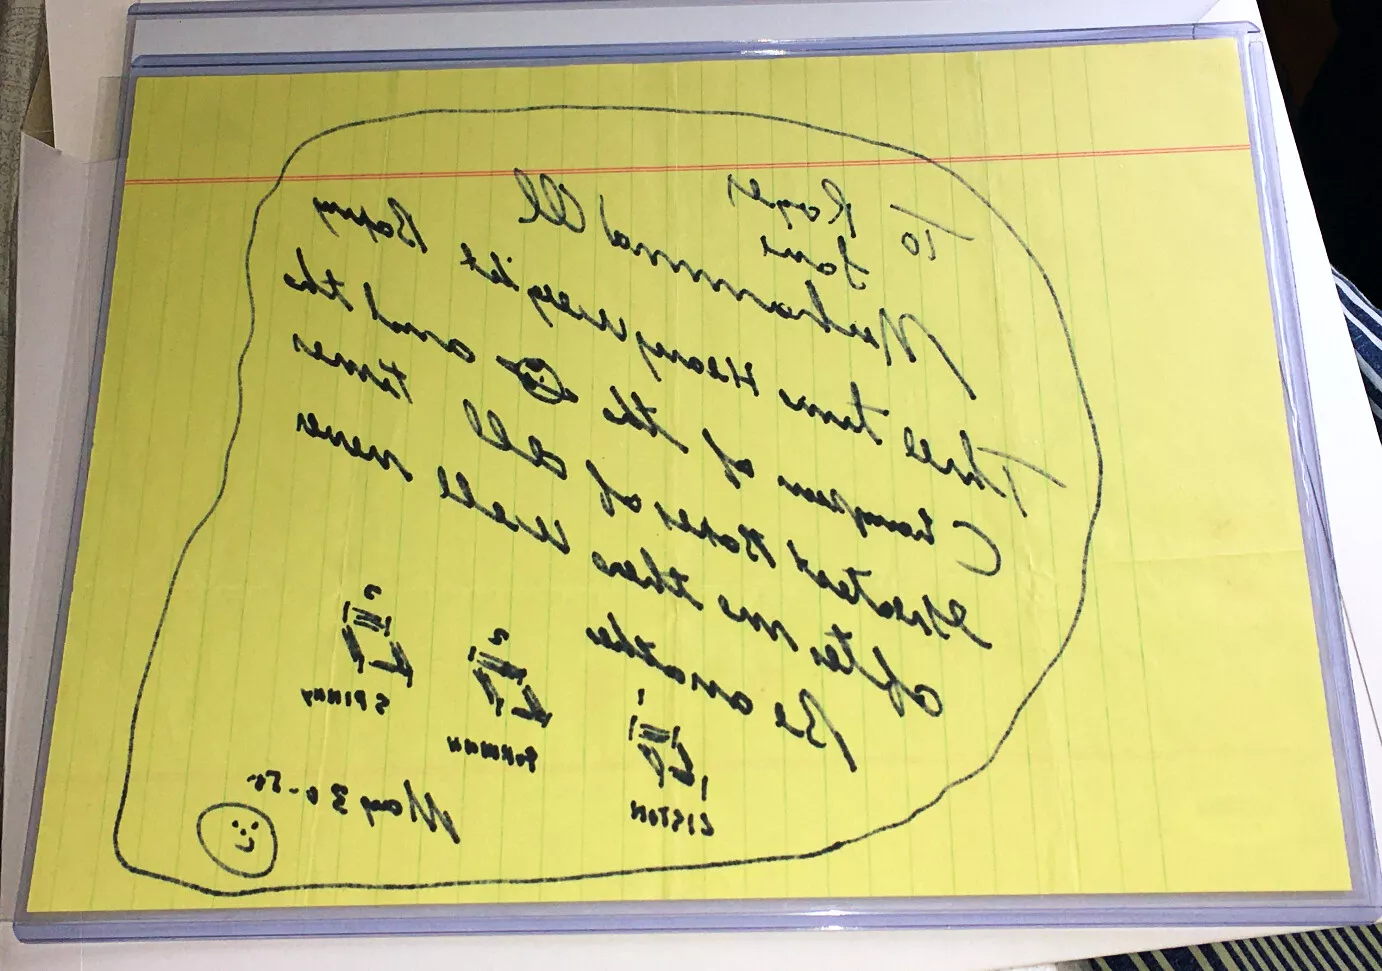 To Roger
Muhammad Ali
Three time Heavyweight Boxing
Champion of the and the
Greatest Boxer of all times
after me there will never
Be another
1 2 3
LISTON FORMAN SPINNY
May 30